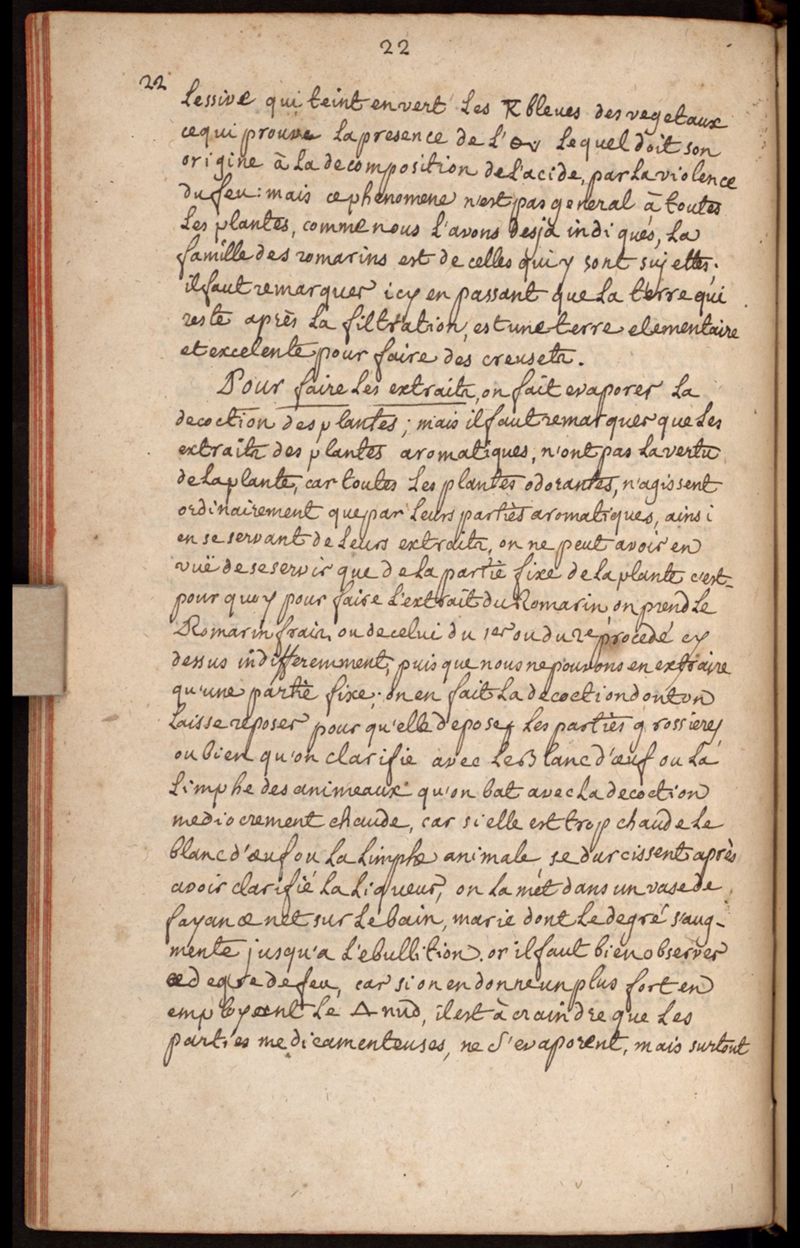 22
22
Lessive qui teint en vert les bleues des vegetaux
ce qui prouve la presence de L' lequel doit son
origine à la decomposition de l'acide, par la violence
du feu: mais ce phenomene n'est pas general à toutes
les plantes, comme nous l'avons desja indiqués, la
famille des romarins est de celles qui y sont sujettes.
il faut remarquer icy en passant que la terre qui
reste après la filtration, est une terre elementaire
et excelente pour faire des creusets.
Pour faire les extraits, on fait evaporer la
decoction des plantes; mais il faut remarquer que les
extraits des plantes aromatiques, n'ont pas la vertu
de la plante, car toutes les plantes odorantes, n'agissent
ordinairement que par leurs parties aromatiques, ainsi
en se servant de leurs extraits, on ne peut avoir en
vuë de se servir que de la partie fixe de la plante c'est-
pour quoy pour faire l'extrait du Romarin, on prend le
Romarin frais, ou de celui du 1er ou du 2e procedé cy
dessus indifferemment, puis que nous ne pouvons en extraire
qu'une partie fixe; on en fait la decoction dont on
laisse reposer pour qu'elle depose les parties grossieres
ou bien qu'on clarifie avec le blanc d'œuf ou la
limphe des animeaux qu'on bat avec la decoction
mediocrement chaude, car si elle est trop chaude le
blanc d'œuf ou la limphe animale se durcissent après
avoir clarifié la liqueur, on la mét dans un vase de
fayance net sur le bain, marie dont le degré s'aug-
mente jusqu'a l'ebullition. or il faut bien observer
ce degre de feu, car si on en donne un plus fort en
employant le △ nud, il est à craindre que les
parties medicamenteuses, ne s'evaporent, mais surtout